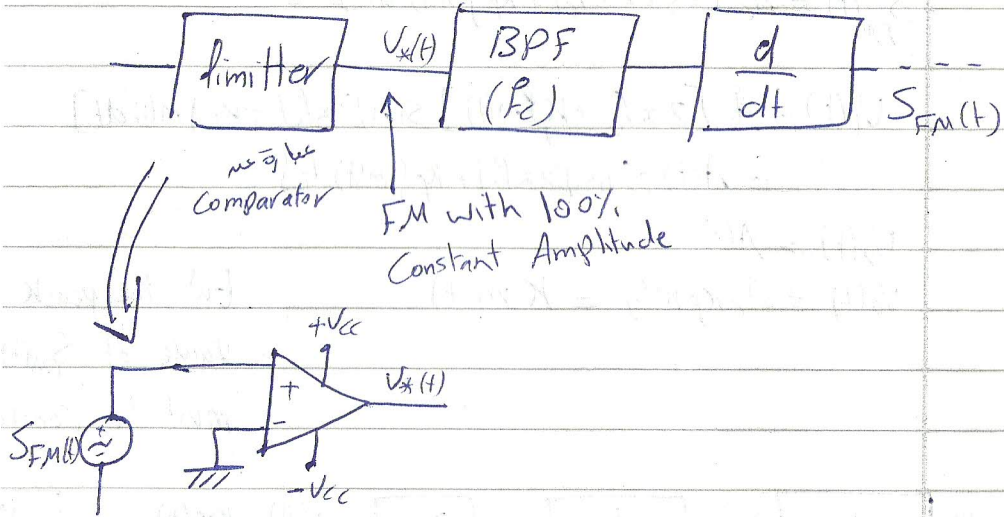 limitter
V*(t)
BPF
(fc)
d
dt
S_FM(t)
Comparator
FM with 100%
Constant Amplitude
+Vcc
+
-
V*(t)
S_FM(t)
-Vcc